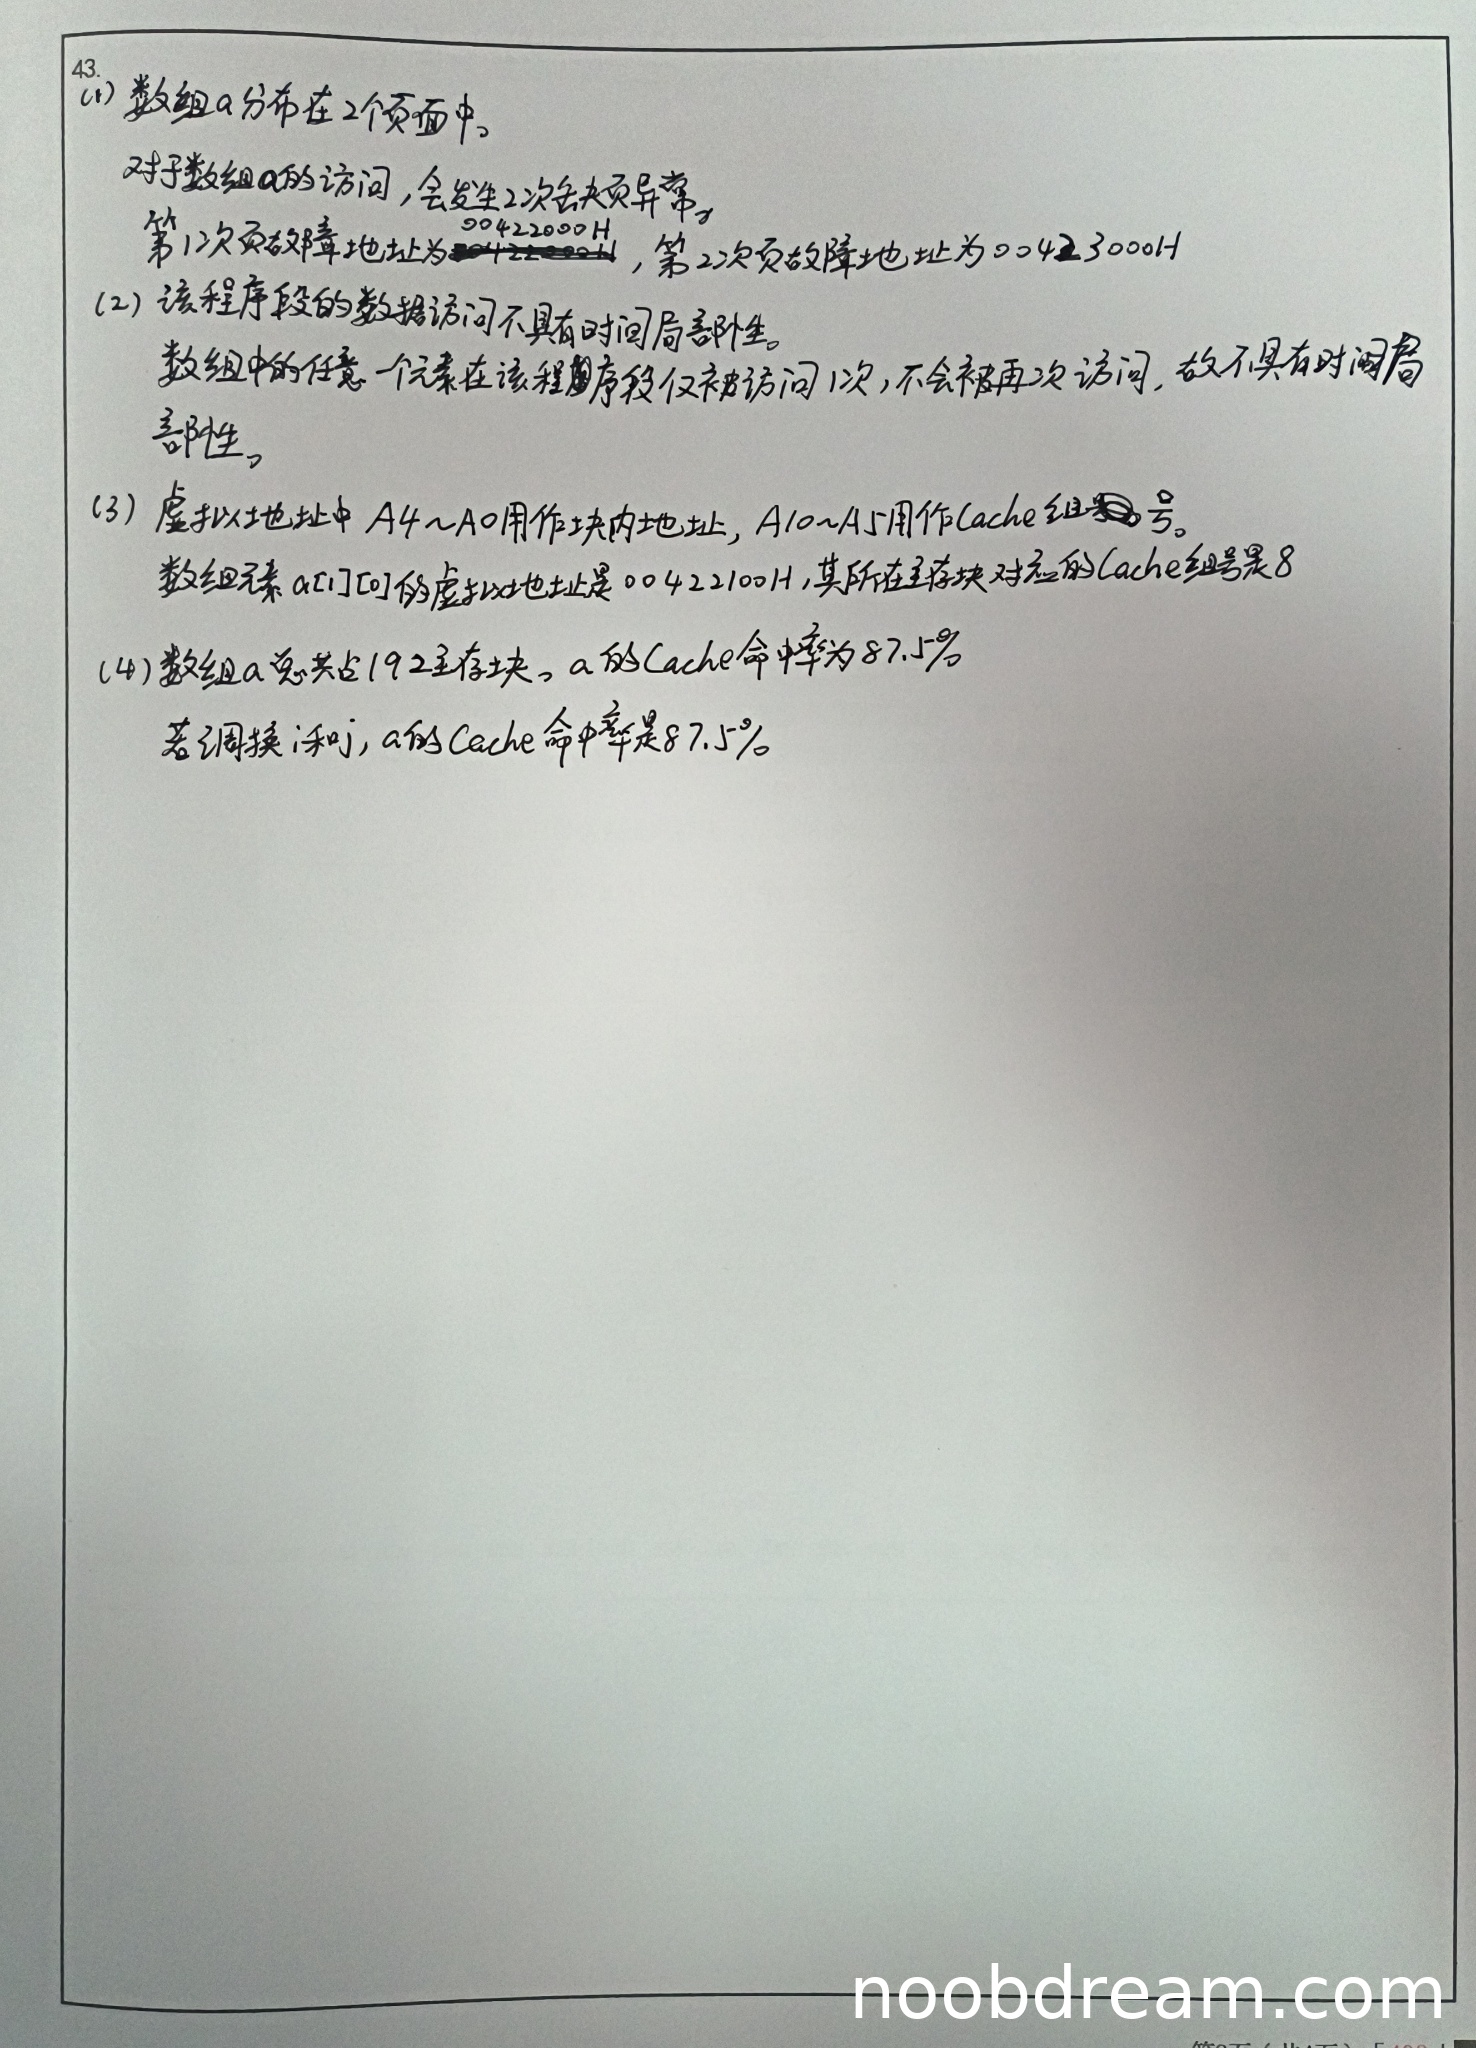 43.
(1) 数组a分布在2个页面中。
对于数组a的访问,会发生2次缺页异常。
第1次页故障地址为00422000H,第2次页故障地址为00423000H
(2) 该程序段的数据访问不具有时间局部性。
数组中的任意一个元素在该程序段仅被访问1次,不会被再次访问,故不具有时间局
部性。
(3) 虚拟地址中 A4~A0用作块内地址,A10~A5用作Cache组号。
数组元素a[1][0]的虚拟地址是00422100H,其所在主存块对应的Cache组号是8
(4) 数组a总共占192主存块。a的Cache命中率为87.5%
若调换i和j,a的Cache命中率是87.5%
noobdream.com